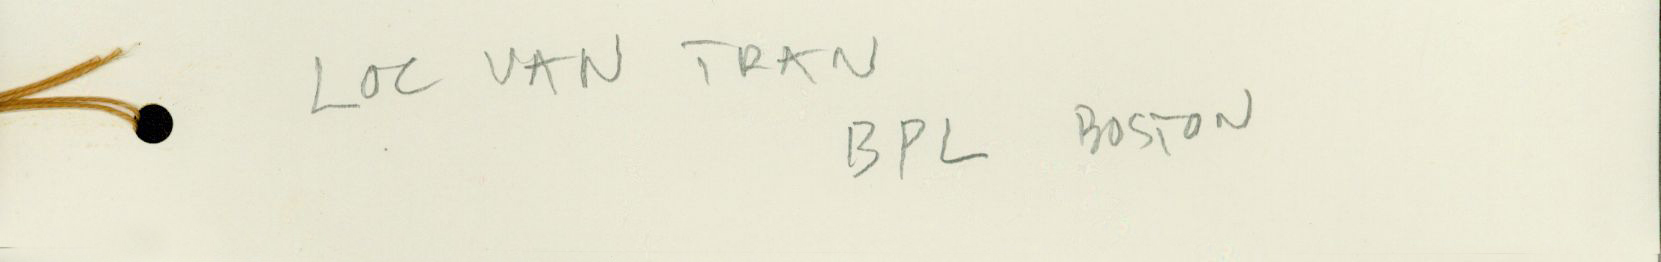 LOC VAN TRAN
BPL BOSTON